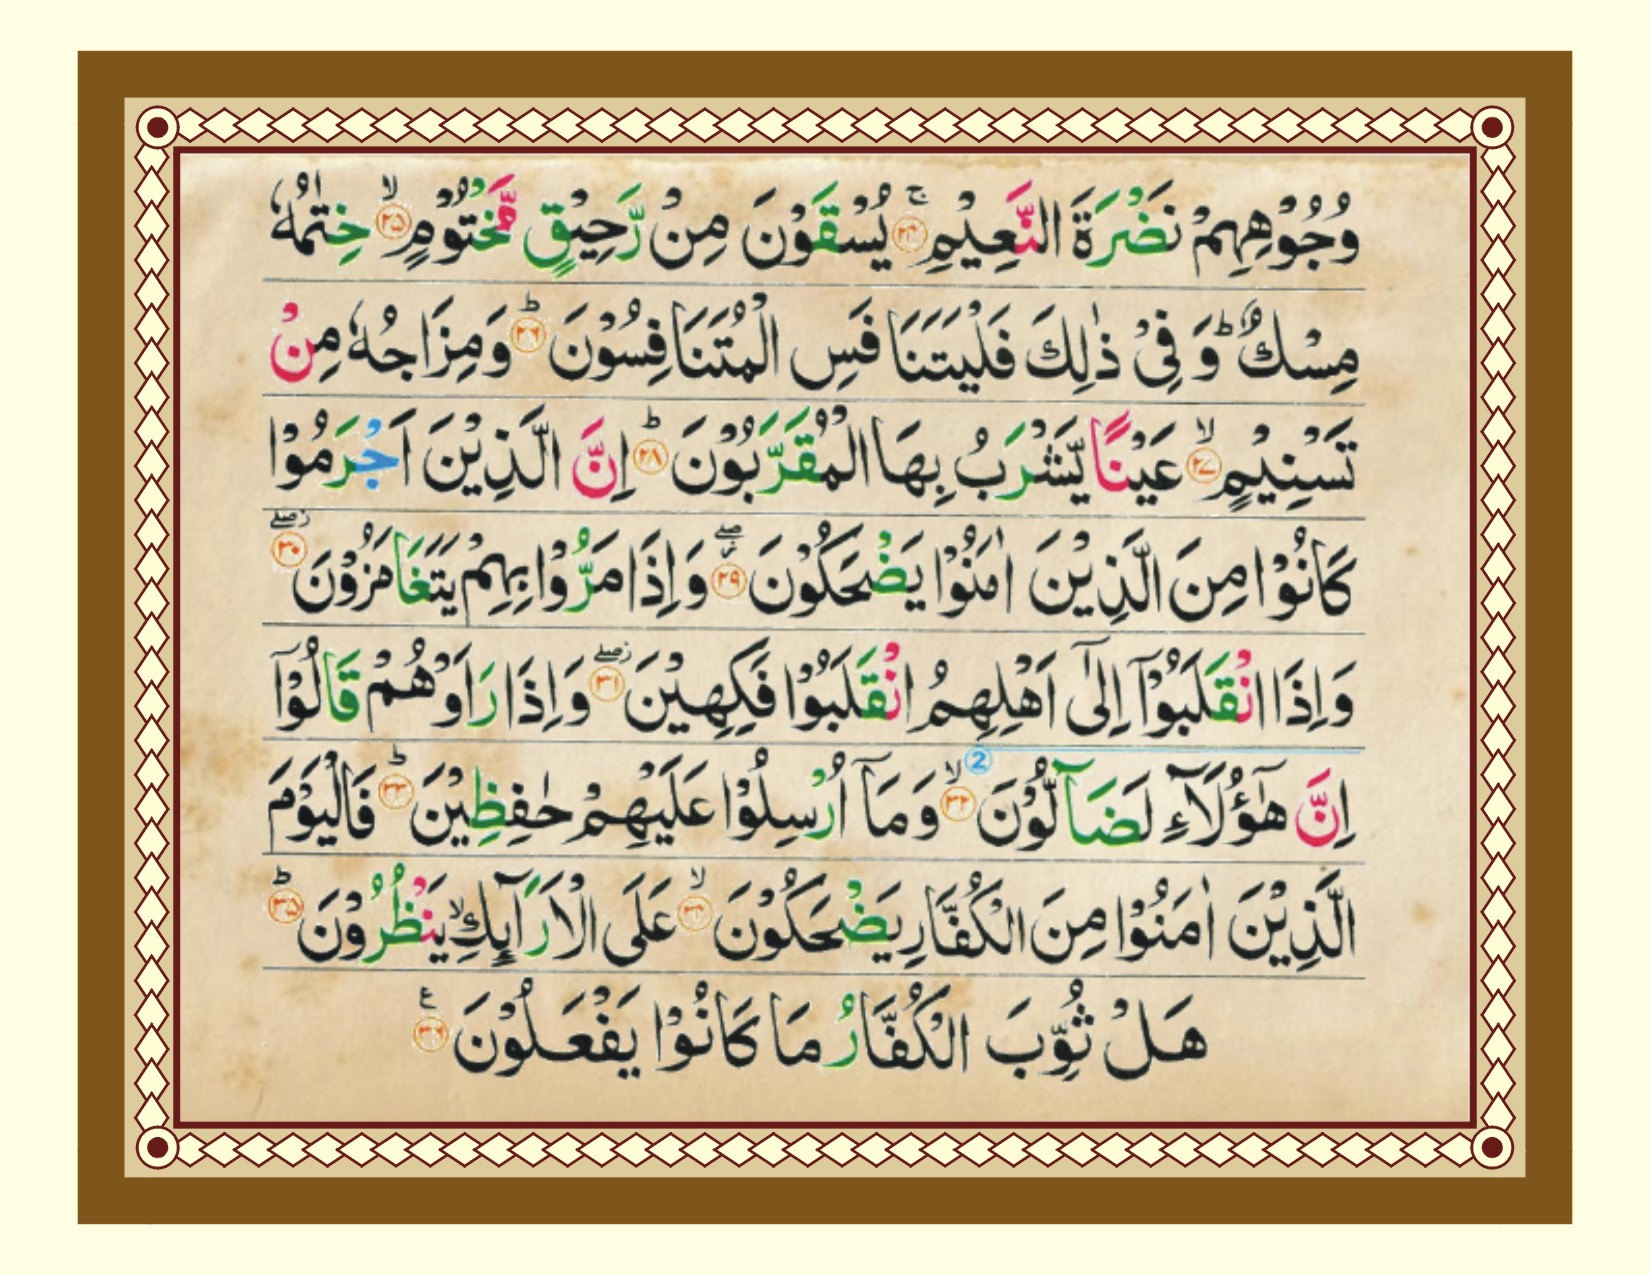 وُجُوْهِهِمْ نَضْرَةَ النَّعِيْمِ ۚ ﴿۲۴﴾ يُسْقَوْنَ مِنْ رَّحِيْقٍ مَّخْتُوْمٍ ۙ ﴿۲۵﴾ خِتٰمُهٗ
مِسْكٌ ؕ وَ فِيْ ذٰلِكَ فَلْيَتَنَافَسِ الْمُتَنَافِسُوْنَ ؕ ﴿۲۶﴾ وَمِزَاجُهٗ مِنْ
تَسْنِيْمٍ ۙ ﴿۲۷﴾ عَيْنًا يَّشْرَبُ بِهَا الْمُقَرَّبُوْنَ ؕ ﴿۲۸﴾ اِنَّ الَّذِيْنَ اَجْرَمُوْا
كَانُوْا مِنَ الَّذِيْنَ اٰمَنُوْا يَضْحَكُوْنَ ۖ ﴿۲۹﴾ وَاِذَا مَرُّوْا بِهِمْ يَتَغَامَزُوْنَ ۖ ﴿۳۰﴾
وَاِذَا انْقَلَبُوْۤا اِلٰۤى اَهْلِهِمُ انْقَلَبُوْا فَكِهِيْنَ ۖ ﴿۳۱﴾ وَاِذَا رَاَوْهُمْ قَالُوْۤا
اِنَّ هٰۤؤُلَآءِ لَضَآلُّوْنَ ۙ ﴿۳۲﴾ 2 وَمَاۤ اُرْسِلُوْا عَلَيْهِمْ حٰفِظِيْنَ ؕ ﴿۳۳﴾ فَالْيَوْمَ
الَّذِيْنَ اٰمَنُوْا مِنَ الْكُفَّارِ يَضْحَكُوْنَ ۙ ﴿۳۴﴾ عَلَى الْاَرَآىِٕكِ ۙ يَنْظُرُوْنَ ؕ ﴿۳۵﴾
هَلْ ثُوِّبَ الْكُفَّارُ مَا كَانُوْا يَفْعَلُوْنَ ع ﴿۳۶﴾